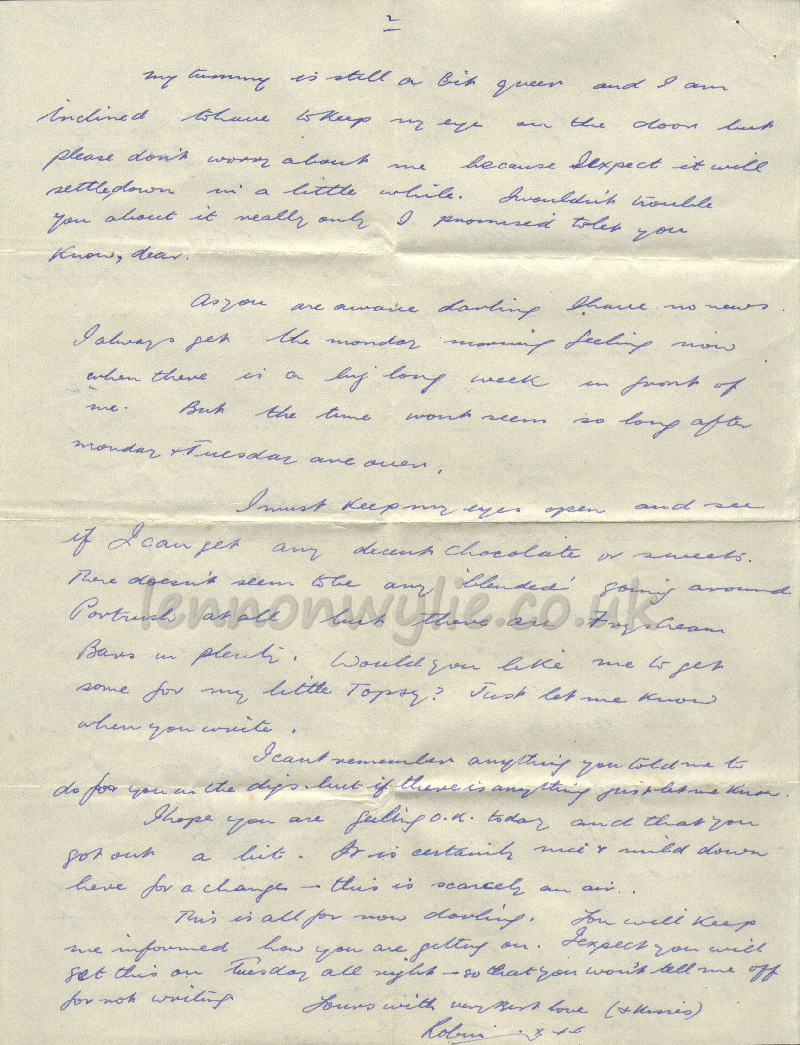 2
my tummy is still a bit queer and I am
inclined to have to keep my eye on the door but
please don't worry about me because I expect it will
settle down in a little while. I wouldn't trouble
you about it really only I promised to let you
know, dear.
As you are aware darling I have no news.
I always get the monday morning feeling now
when there is a big long week in front of
me. But the time wont seem so long after
monday & Tuesday are over.
I must keep my eyes open and see
if I can get any decent chocolate or sweets.
There doesn't seem to be any 'blended' going around
Portrush at all but there are Frys Cream
Bars in plenty. Would you like me to get
some for my little Topsy? Just let me know
when you write.
I cant remember anything you told me to
do for you in the digs. but if there is anything just let me know.
I hope you are feeling O.K. today and that you
got out a bit. It is certainly nice & mild down
here for a change - this is scarcely an air..
This is all for now darling. You will keep
me informed how you are getting on. I expect you will
get this on Tuesday all right - so that you won't tell me off
for not writing
Yours with very Best love (& kisses)
Robin
lennonwylie.co.uk